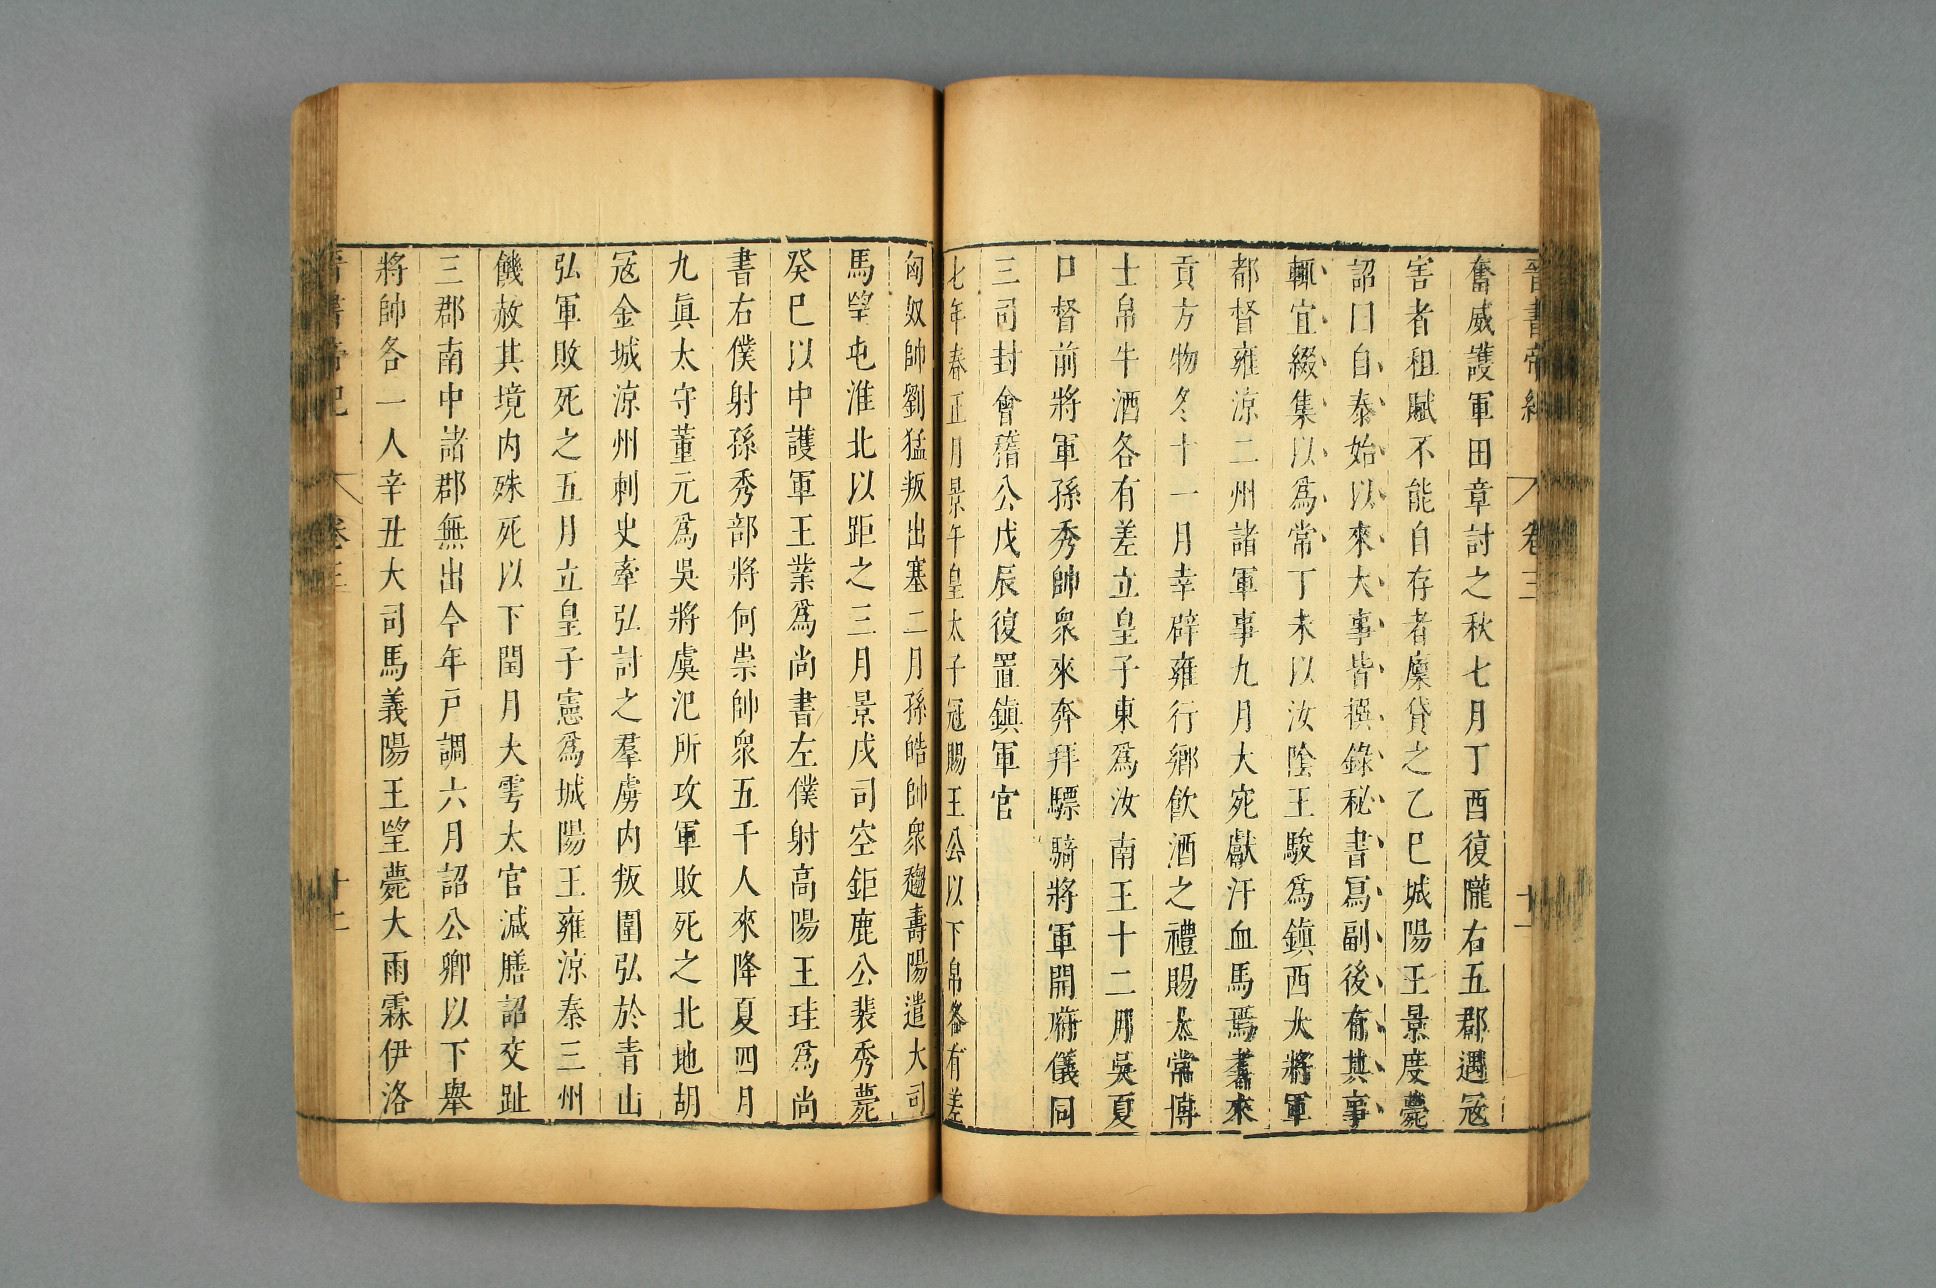 晉書帝紀 卷三 十一
奮威護軍田章討之秋七月丁酉復隴右五郡遇寇
害者租賦不能自存者廩貸之乙巳城陽王景度薨
詔曰自泰始以來大事皆撰錄秘書寫副後有其事
輒宜綴集以爲常丁未以汝陰王駿爲鎮西大將軍
都督雍涼二州諸軍事九月大宛獻汗血馬焉耆來
貢方物冬十一月幸辟雍行鄉飲酒之禮賜太常博
士帛牛酒各有差立皇子東爲汝南王十二月吳夏
口督前將軍孫秀帥眾來奔拜驃騎將軍開府儀同
三司封會稽公戊辰復置鎮軍官
七年春正月景午皇太子冠賜王公以下帛各有差
匈奴帥劉猛叛出塞二月孫皓帥眾趨壽陽遣大司
馬望屯淮北以距之三月景戌司空鉅鹿公裴秀薨
癸巳以中護軍王業爲尚書左僕射高陽王珪爲尚
書右僕射孫秀部將何崇帥眾五千人來降夏四月
九眞太守董元爲吳將虞汜所攻軍敗死之北地胡
寇金城涼州刺史牽弘討之羣虜內叛圍弘於青山
弘軍敗死之五月立皇子憲爲城陽王雍涼秦三州
饑赦其境內殊死以下閏月大雩太官減膳詔交趾
三郡南中諸郡無出今年戶調六月詔公卿以下舉
將帥各一人辛丑大司馬義陽王望薨大雨霖伊洛
晉書帝紀 卷三 十二